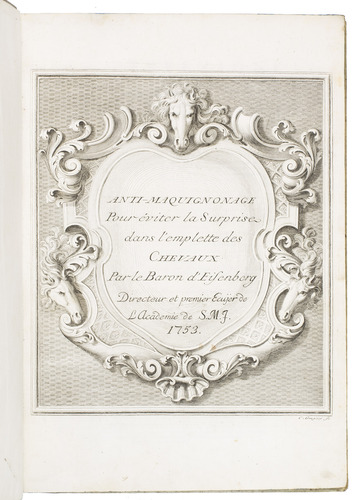 ANTI-MAQUIGNONAGE
Pour éviter la Surprise
dans l'emplette des
CHEVAUX
Par le Baron d'Eisenberg
Directeur et premier Ecuyer de
L'Académie de S.M.J.
1753.